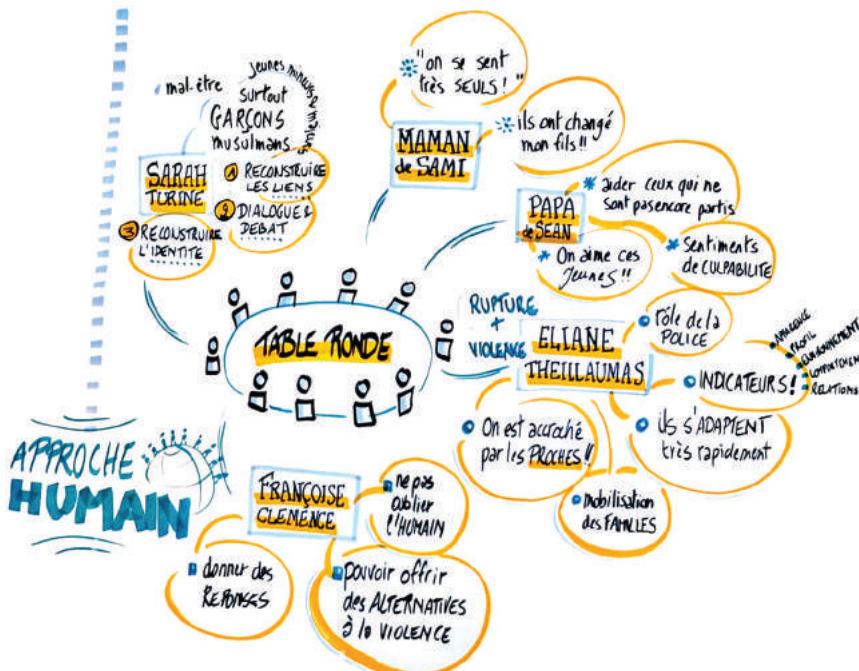 mal-être
jeunes mineurs & majeurs
surtout
GARÇONS
musulmans
SARAH
TURINE
1 RECONSTRUIRE
LES LIENS
2 DIALOGUE &
DEBAT
3 RECONSTRUIRE
L'IDENTITE
"on se sent
très SEULS!"
MAMAN
de SAMI
ils ont changé
mon fils!!
PAPA
de SEAN
aider ceux qui ne
sont pas encore partis
On aime ces
Jeunes!!
sentiments
de CULPABILITE
TABLE RONDE
RUPTURE
+
VIOLENCE
ELIANE
THEILLAUMAS
rôle de la
POLICE
INDICATEURS!
APPARENCE
PROFIL
ENVIRONNEMENT
COMPORTEMENT
RELATIONS
On est accroché
par les PROCHES!!
ils S'ADAPTENT
très rapidement
mobilisation
des FAMILLES
APPROCHE
HUMAIN
FRANÇOISE
CLEMENCE
ne pas
oublier
l'HUMAIN
donner des
REPONSES
pouvoir offrir
des ALTERNATIVES
à la VIOLENCE